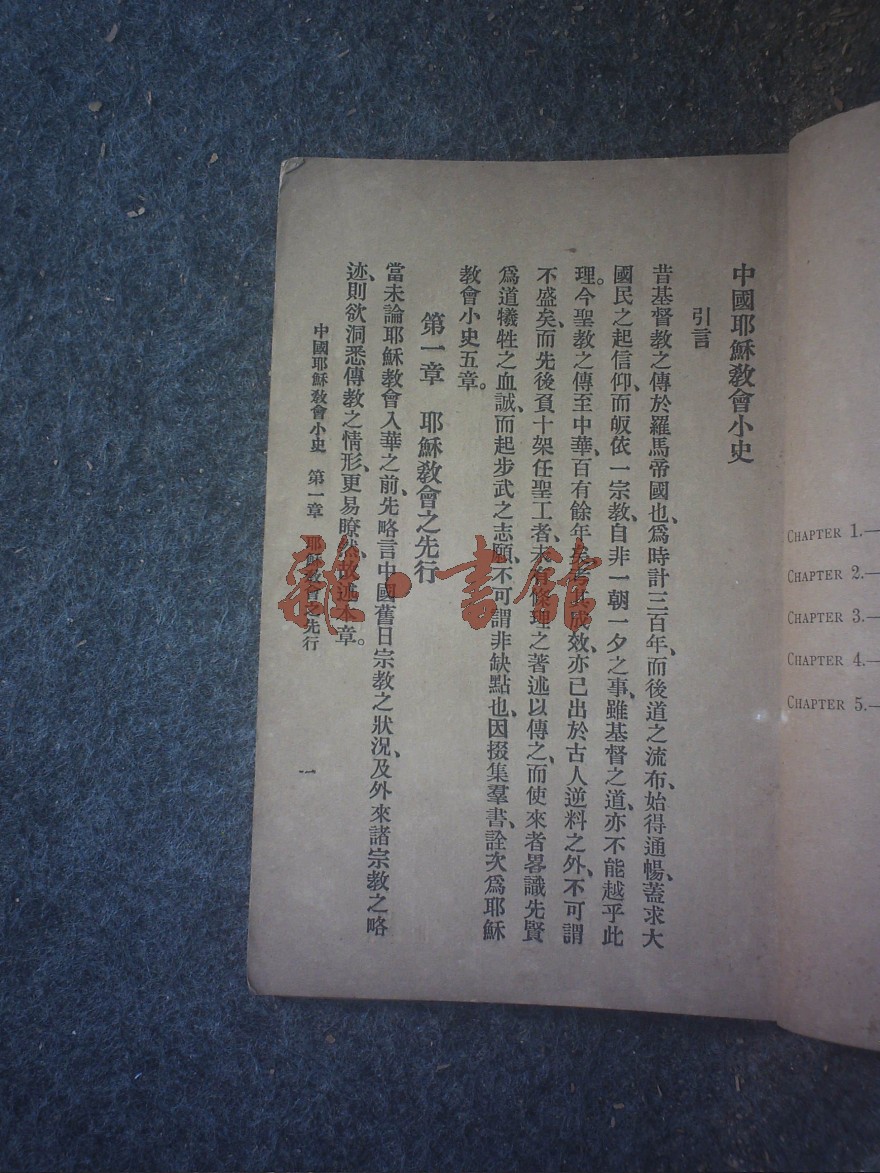 中國耶穌敎會小史
引言
昔基督敎之傳於羅馬帝國也、爲時計三百年、而後道之流布、始得通暢、蓋求大
國民之起信仰、而皈依一宗敎、自非一朝一夕之事、雖基督之道、亦不能越乎此
理。今聖敎之傳至中華、百有餘年矣、成效、亦已出於古人逆料之外、不可謂
不盛矣、而先後負十架任聖工者、未有條理之著述以傳之、而使來者畧識先賢
爲道犧牲之血誠、而起步武之志願、不可謂非缺點也、因掇集羣書、詮次爲耶穌
敎會小史五章。
第一章 耶穌敎會之先行
當未論耶穌敎會入華之前、先略言中國舊日宗敎之狀况、及外來諸宗敎之略
迹、則欲洞悉傳敎之情形、更易瞭然、故述本章。
中國耶穌敎會小史 第一章 耶穌敎會之先行
一
CHAPTER 1.—
CHAPTER 2.—
CHAPTER 3.—
CHAPTER 4.—
CHAPTER 5.—
雜·書館